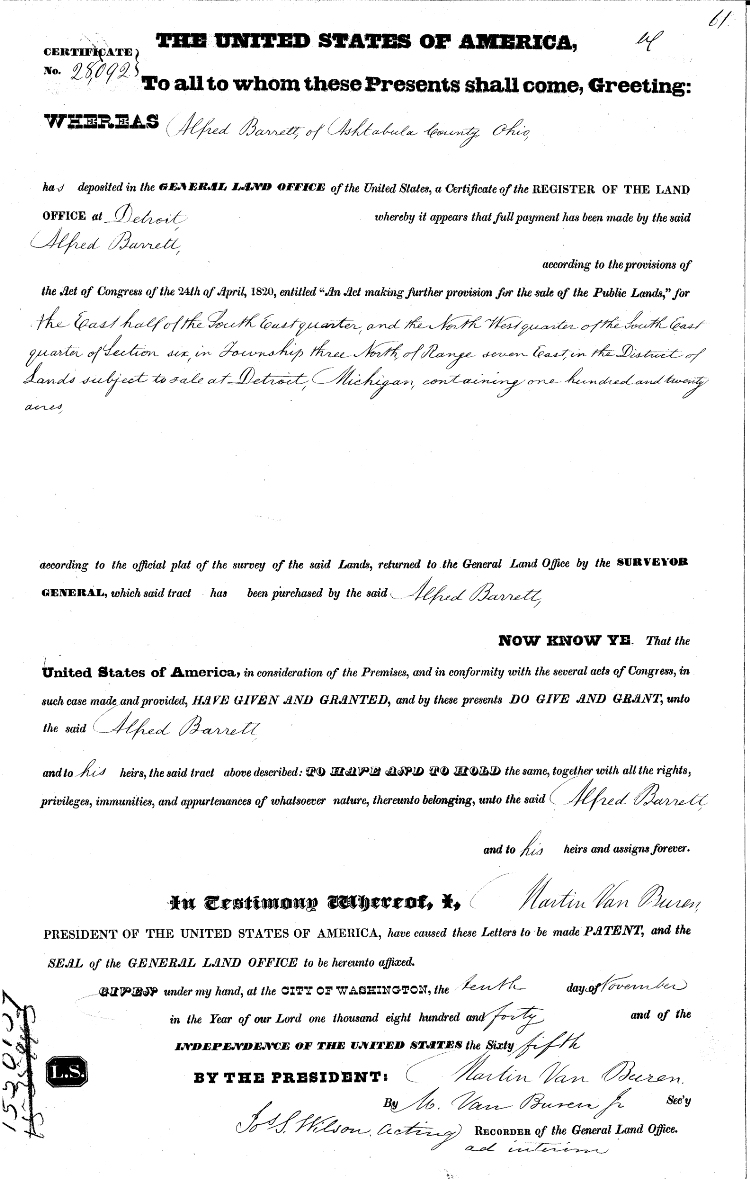 61.
THE UNITED STATES OF AMERICA,
CERTIFICATE
No. 28,092
To all to whom these Presents shall come, Greeting:
WHEREAS Alfred Barrett, of Ashtabula County, Ohio,
has deposited in the GENERAL LAND OFFICE of the United States, a Certificate of the REGISTER OF THE LAND
OFFICE at Detroit, whereby it appears that full payment has been made by the said
Alfred Barrett,
according to the provisions of
the Act of Congress of the 24th of April, 1820, entitled "An Act making further provision for the sale of the Public Lands," for
the East half of the South East quarter, and the North West quarter of the South East
quarter of Section six, in Township three North, of Range seven East, in the District of
Lands subject to sale at Detroit, Michigan, containing one hundred and twenty
acres,
according to the official plat of the survey of the said Lands, returned to the General Land Office by the SURVEYOR
GENERAL, which said tract has been purchased by the said Alfred Barrett,
NOW KNOW YE. That the
United States of America, in consideration of the Premises, and in conformity with the several acts of Congress, in
such case made and provided, HAVE GIVEN AND GRANTED, and by these presents DO GIVE AND GRANT, unto
the said Alfred Barrett,
and to his heirs, the said tract above described: TO HAVE AND TO HOLD the same, together with all the rights,
privileges, immunities, and appurtenances of whatsoever nature, thereunto belonging, unto the said Alfred Barrett,
and to his heirs and assigns forever.
In Testimony Whereof, I, Martin Van Buren,
PRESIDENT OF THE UNITED STATES OF AMERICA, have caused these Letters to be made PATENT, and the
SEAL of the GENERAL LAND OFFICE to be hereunto affixed.
GIVEN under my hand, at the CITY OF WASHINGTON, the tenth day of November
in the Year of our Lord one thousand eight hundred and forty and of the
INDEPENDENCE OF THE UNITED STATES the Sixty fifth
L.S.
BY THE PRESIDENT: Martin Van Buren.
By M. Van Buren Jr Sec'y
Jos. S. Wilson, acting RECORDER of the General Land Office.
ad interim